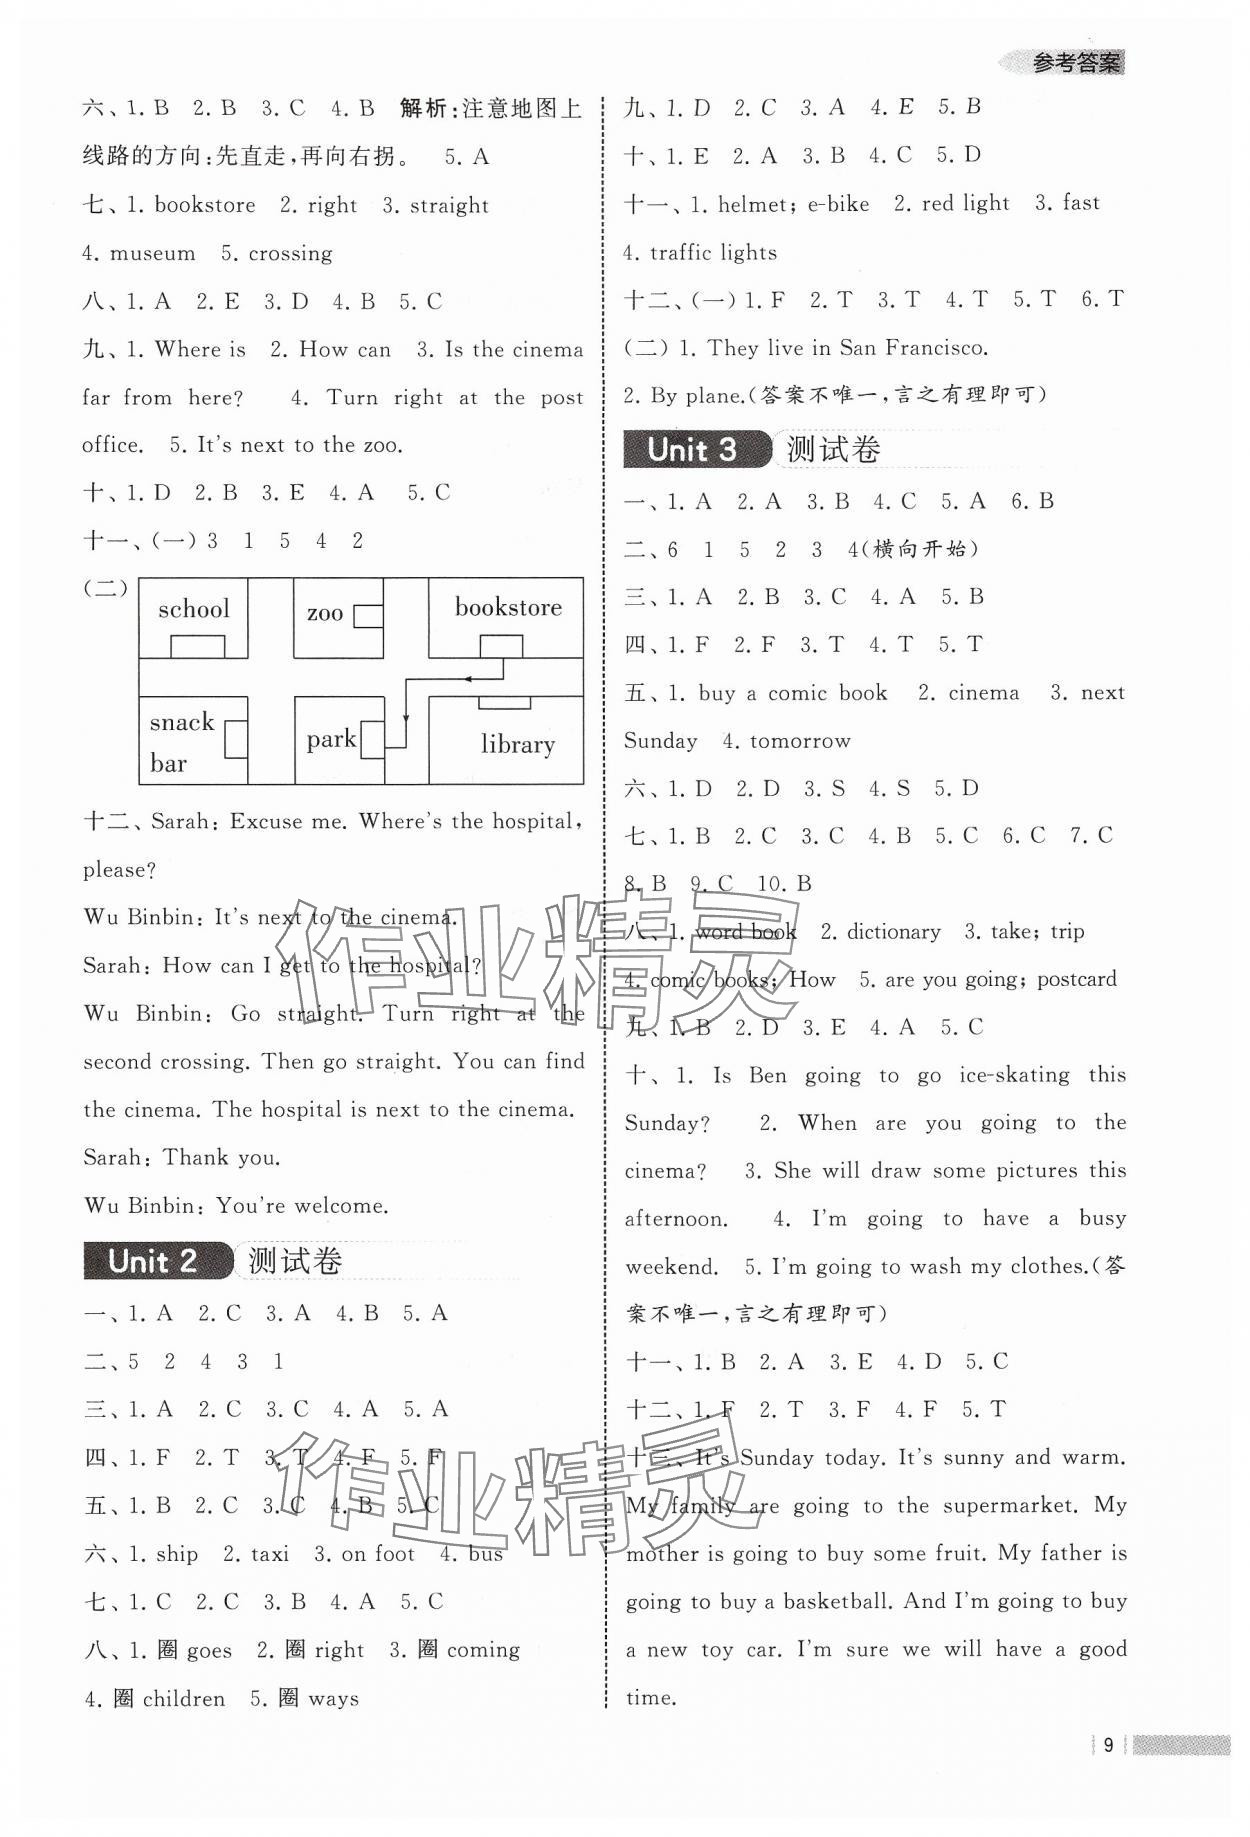 参考答案
六、1. B 2. B 3. C 4. B 解析:注意地图上
线路的方向:先直走,再向右拐。 5. A
七、1. bookstore 2. right 3. straight
4. museum 5. crossing
八、1. A 2. E 3. D 4. B 5. C
九、1. Where is 2. How can 3. Is the cinema
far from here? 4. Turn right at the post
office. 5. It's next to the zoo.
十、1. D 2. B 3. E 4. A 5. C
十一、(一) 3 1 5 4 2
(二)
school
zoo
bookstore
snack
bar
park
library
十二、Sarah: Excuse me. Where's the hospital,
please?
Wu Binbin: It's next to the cinema.
Sarah: How can I get to the hospital?
Wu Binbin: Go straight. Turn right at the
second crossing. Then go straight. You can find
the cinema. The hospital is next to the cinema.
Sarah: Thank you.
Wu Binbin: You're welcome.
Unit 2 测试卷
一、1. A 2. C 3. A 4. B 5. A
二、5 2 4 3 1
三、1. A 2. C 3. C 4. A 5. A
四、1. F 2. T 3. T 4. F 5. F
五、1. B 2. C 3. C 4. B 5. C
六、1. ship 2. taxi 3. on foot 4. bus
七、1. C 2. C 3. B 4. A 5. C
八、1. 圈 goes 2. 圈 right 3. 圈 coming
4. 圈 children 5. 圈 ways
九、1. D 2. C 3. A 4. E 5. B
十、1. E 2. A 3. B 4. C 5. D
十一、1. helmet; e-bike 2. red light 3. fast
4. traffic lights
十二、(一) 1. F 2. T 3. T 4. T 5. T 6. T
(二) 1. They live in San Francisco.
2. By plane.(答案不唯一,言之有理即可)
Unit 3 测试卷
一、1. A 2. A 3. B 4. C 5. A 6. B
二、6 1 5 2 3 4(横向开始)
三、1. A 2. B 3. C 4. A 5. B
四、1. F 2. F 3. T 4. T 5. T
五、1. buy a comic book 2. cinema 3. next
Sunday 4. tomorrow
六、1. D 2. D 3. S 4. S 5. D
七、1. B 2. C 3. C 4. B 5. C 6. C 7. C
8. B 9. C 10. B
八、1. word book 2. dictionary 3. take; trip
4. comic books; How 5. are you going; postcard
九、1. B 2. D 3. E 4. A 5. C
十、1. Is Ben going to go ice-skating this
Sunday? 2. When are you going to the
cinema? 3. She will draw some pictures this
afternoon. 4. I'm going to have a busy
weekend. 5. I'm going to wash my clothes.(答
案不唯一,言之有理即可)
十一、1. B 2. A 3. E 4. D 5. C
十二、1. F 2. T 3. F 4. F 5. T
十三、It's Sunday today. It's sunny and warm.
My family are going to the supermarket. My
mother is going to buy some fruit. My father is
going to buy a basketball. And I'm going to buy
a new toy car. I'm sure we will have a good
time.
作业精灵
作业精灵
9